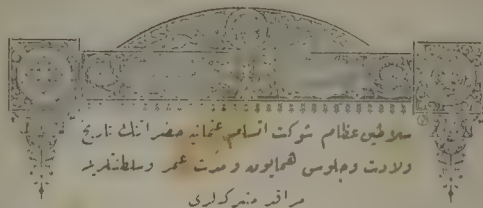 سلاطین عظام شوکت اتسامی عثمانیه حضراتنك تاریخ
ولادت وجلوسی همایون ومدت عمر وسلطنتلریله
مراقد متبرکه لری